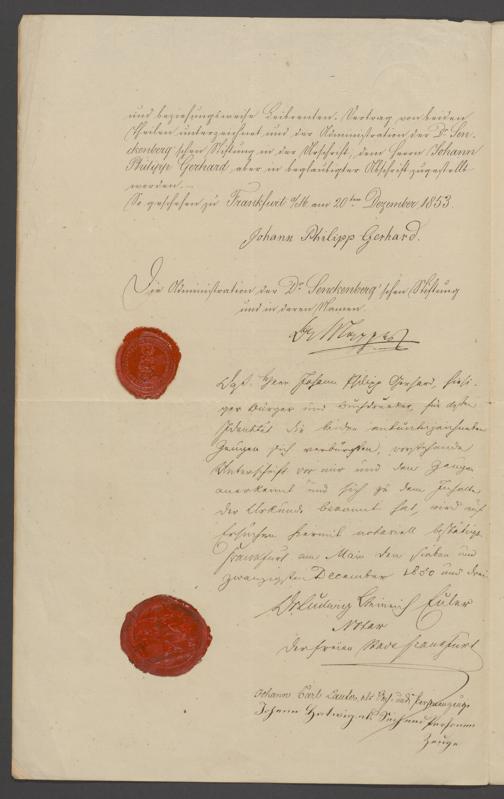 und beziehungsweise Leibrenten-Vertrag von beiden
Theilen unterzeichnet und der Administration der Dr. Sen-
ckenberg'schen Stiftung in der Urschrift, dem Herrn Johann
Philipp Gerhard, aber in beglaubigter Abschrift zugestellt
worden.
So geschehen zu Frankfurt a/M am 20ten Dezember 1853.
Johann Philipp Gerhard.
Die Administration der Dr. Senckenberg'schen Stiftung
und in deren Namen
Dr. Mappes
Daß Herr Johann Philipp Gerhard, hiesi-
ger Bürger und Buchdrucker, für dessen
Identität die beiden mitunterzeichneten
Zeugen sich verbürgten, vorstehende
Unterschrift vor mir und den Zeugen
anerkannt und sich zu dem Inhalte
der Urkunde bekannt hat, wird auf
Ersuchen hiermit notariell bestätigt.
Frankfurt am Main den sieben und
zwanzigsten December 1850 und drei
Dr. Ludwig Heinrich Euler
Notar
der freien Stadt Frankfurt
Johann Carl Lauter, als Sach- und Personenzeuge
Johann Hartwig als Sach und Personen
Zeuge